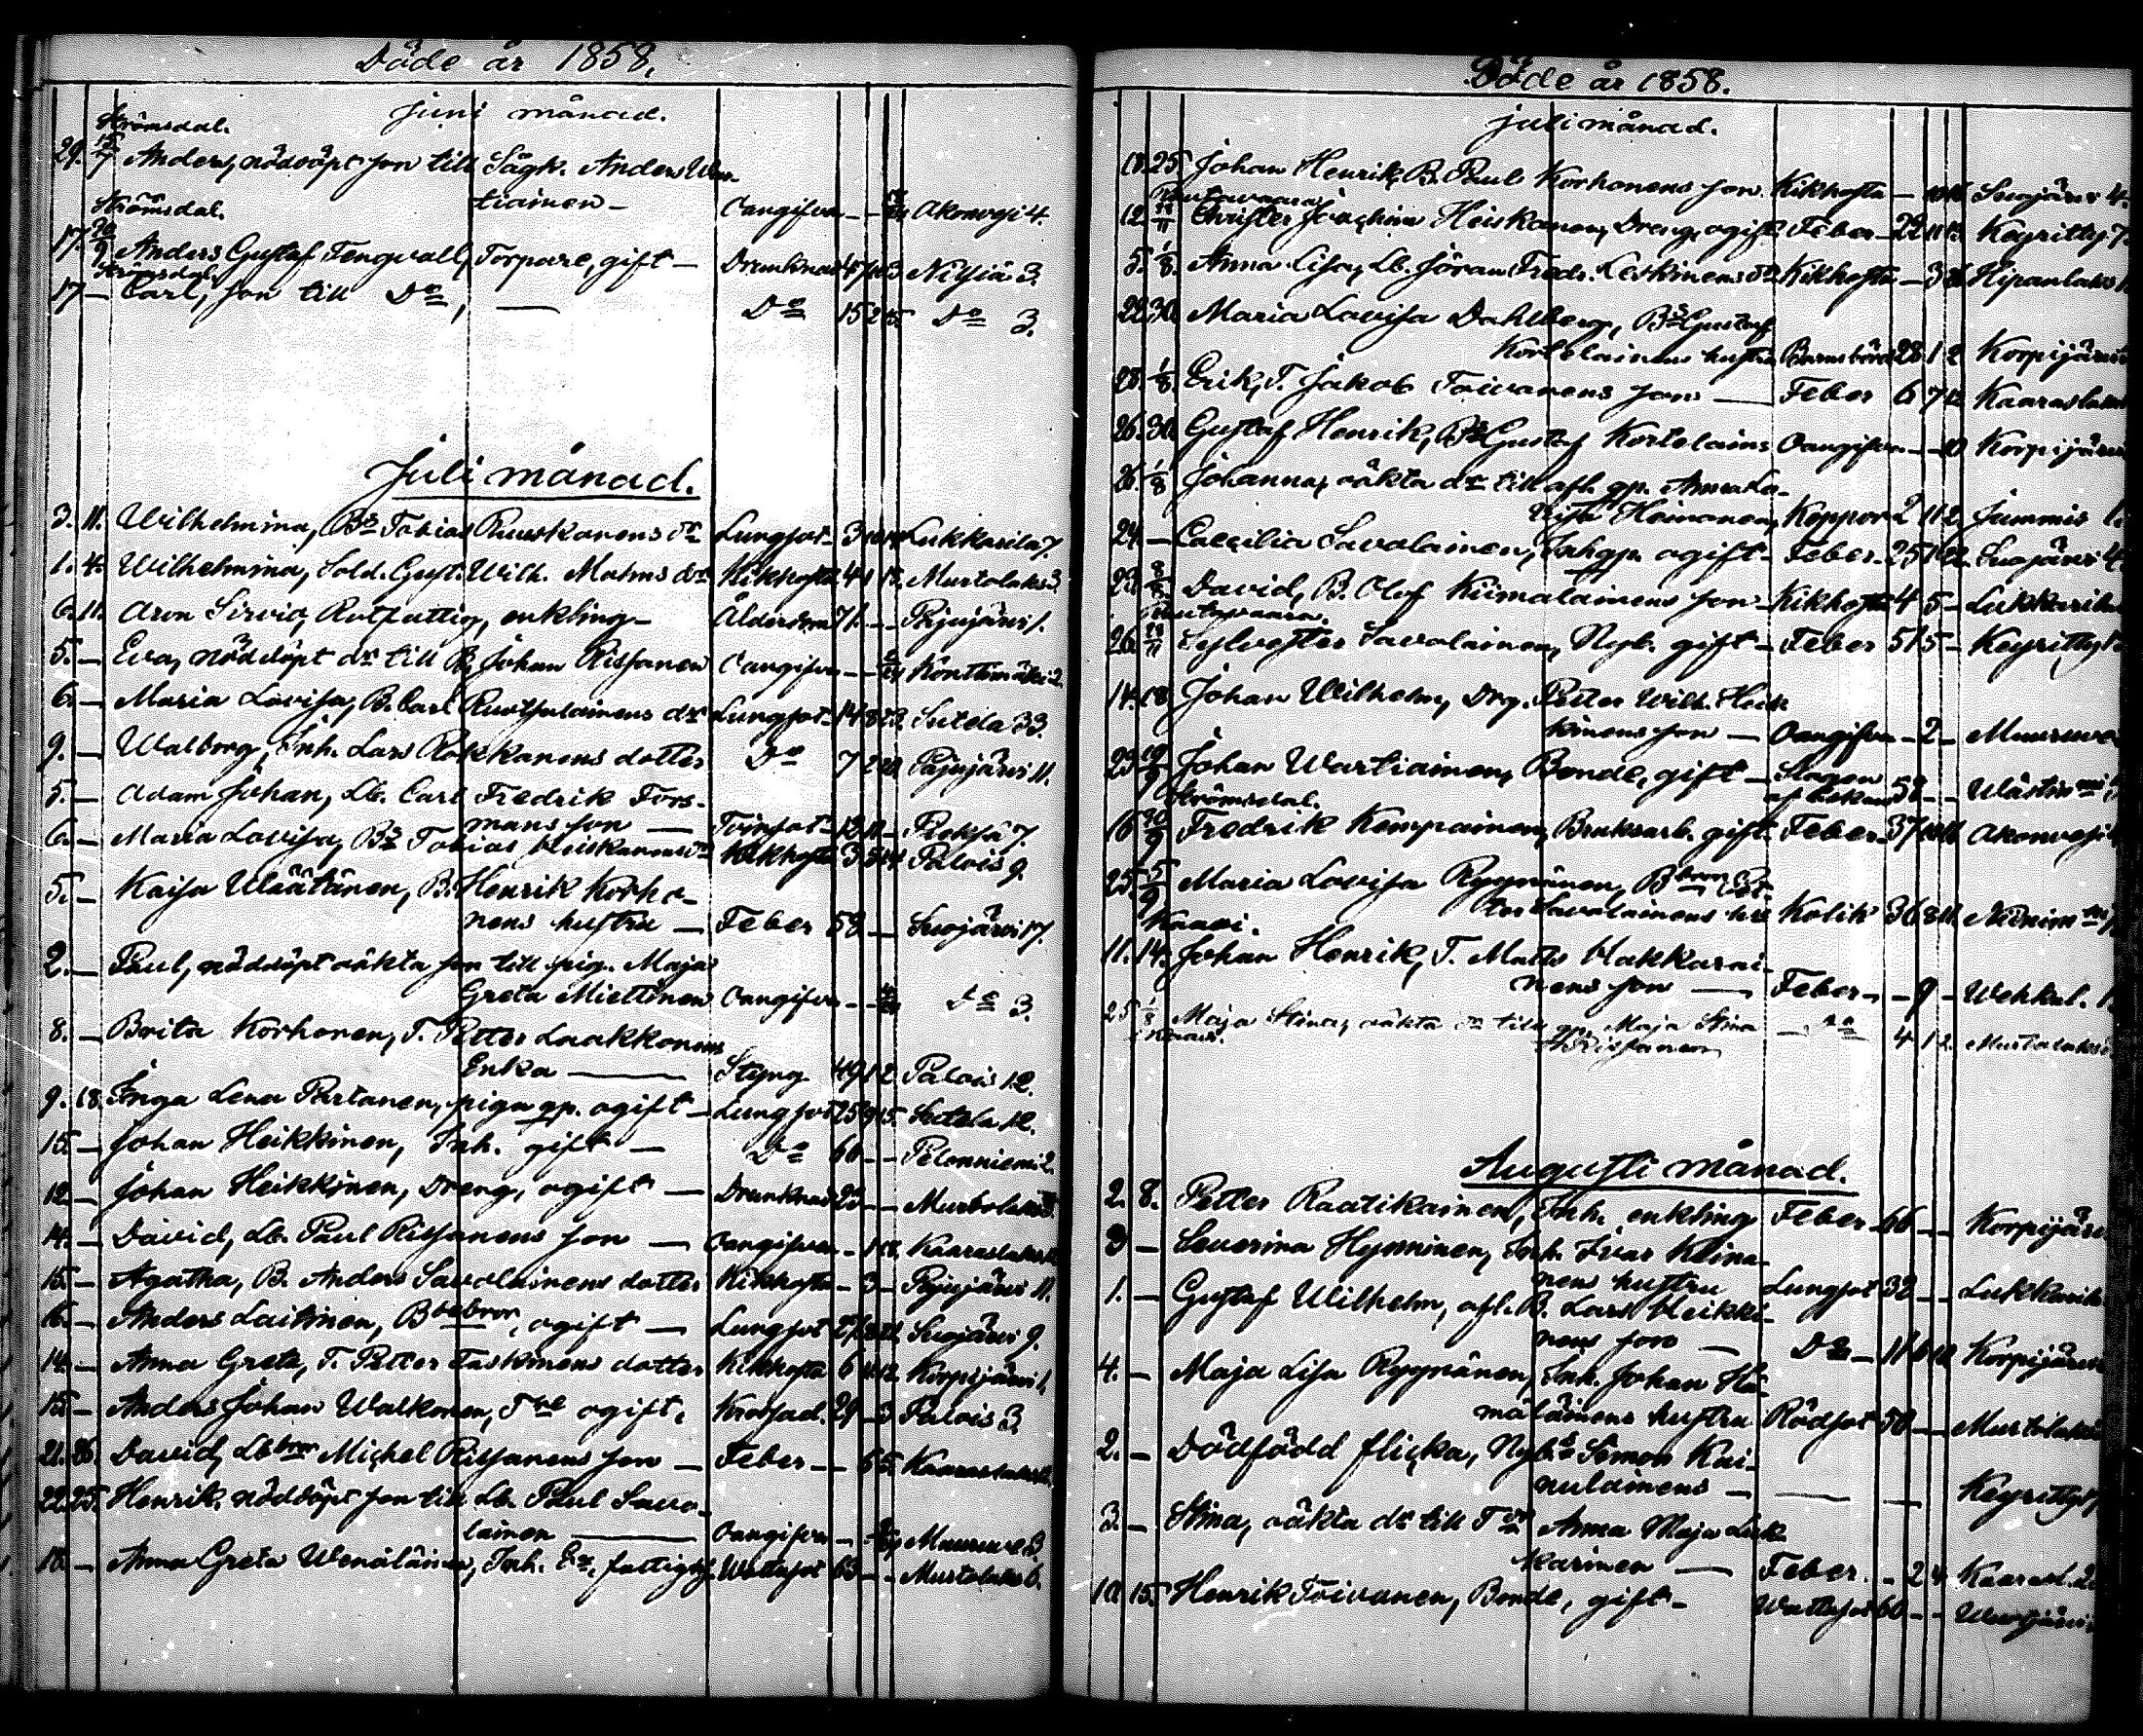 Döde år 1858.
Juni månad.
Strömsdal.
29. 15/7 Anders, nöddöpt son till Sågk. Anders
tiainen — Oangifven — — Akonvesi 4.
Strömsdal.
17. 20/9 Anders Gustaf Fengvall, Torpare, gift — Drunknad Nilsiä 3.
Strömsdal.
17 — Carl, son till Do, — Do 15 2 15. Do 3.
Juli månad.
3. 11. Wilhelmina, Bs Tobias Ruuskanens dr Lungsot 3 Lukkarila 7.
1. 4. Wilhelmina, Sold. Gust. Wilh. Malms dr Kikhosta 4 1 Murtolaks 3.
6. 11. Aron Sirviö, Rotfattig, enkling — Ålderdom 71. — — Pajujärvi 1.
5. — Eva, nöddöpt dr till B. Johan Rissanen Oangifven — — Konttimäki 2.
6. — Maria Lovisa, B. Carl Ruotsalainens dr Lungsot 14 8 Sutela 33.
9. — Walborg, Inh. Lars Roskanens dotter Do 7 2 Pajujärvi 11.
5. — Adam Johan, Lb. Carl Fredrik Fors-
mans son — Tvinsot 12 11 — Reksä 7.
6. — Maria Lovisa, Bs Tobias Heiskanens dr Kikhosta 3 5 14. Palois 9.
5. — Kaisa Wäätänen, B. Henrik Korho-
nens hustru — Feber 58 — Suojärvi 17.
2. — Paul, nöddöpt oäkta son till pig. Maja
Greta Miettinen Oangifven — — Do 3.
8. — Brita Korhonen, T. Petter Laakkonens
Enka — Styng 49 1 2. Palois 12.
9. 18. Inga Lena Partanen, piga gp. ogift — Lungsot 25 9 15. Sutela 12.
15. — Johan Heikkinen, Inh. gift — Do 66 — — Pelonniemi 2.
12. — Johan Heikkinen, Dreng, ogift — Drunknad 25 — — Murtolaks
14. — David, Lb. Paul Rissanens son — Oangifven — 1 Kaaraslaks
15. — Agatha, B. Anders Savolainens dotter Kikhosta — 3 — Pajujärvi 11.
16. — Anders Laitinen, Bdebror, ogift — Lungsot 27 Suojärvi 9.
14. — Anna Greta, T. Petter Taskinens dotter Kikhosta 6 Korpijärvi 1.
15. — Anders Johan Walkonen, ogift, Krossad. 29 — 3 Palois 3.
21. 26. David, Lbbror Michel Rissanens son — Feber — — 6 5. Kaaraslaks
22. 25. Henrik, nöddöpt son till Lb. Paul Savo-
lainen — Oangifven — Muuruve. 3.
16. — Anna Greta Wenäläinen, Inh. fattighj. Wattusot 63 — — Murtolaks 6.
Döde år 1858.
Juli månad.
18. 25. Johan Henrik, B. Paul Korhonens son. Kikhosta — 10 Suojärvi 4.
Rautavaara
12. /11 Christer Joachim Heiskanen, Dreng, ogift Feber — 22 11 Keyritty 7.
5. 1/8. Anna Lisa, Lb. Jöran Fredr. Leskinens dr Kikhosta — 3 Hipanlaks 1.
22. 30. Maria Lovisa Dahlberg, Bs Gustaf
Kortelainens hustru Barnsbörd 28 1 2 Korpijärvi
28. 1/8. Erik, T. Jakob Toivanens son — Feber 6 7 12. Kaaraslaks
26. 30. Gustaf Henrik, Bs Gustaf Kortelains Oangifven — — 10 Korpijärvi
26. 1/8 Johanna, oäkta dr till afl. gp. Anna Lo-
visa Heimonen, Koppor 2 11 2. Jummis 1.
24. — Caecilia Savolainen, Inhgp. ogift — Feber. 25 Suojärvi 4.
23. 8/8. David, B. Olof Kiimalainens son — Kikhosta 4 5 — Lukkarila
Rautavaara.
26. /11 Sylvester Savolainen, Nyb. gift — Feber 51 5 — Keyritty
14. 18 Johan Wilhelm, Drg. Petter Wilh. Heik
kinens son — Oangifven — 2 — Muuruve
23 19/9 Johan Wartiainen, Bonde, gift — Slagen
af åskan 58 — — Wästin
Strömsdal.
16 20/9 Fredrik Komppainen, Bruksarb. gift. Feber. 37 10 11 Akonvesi
25. 5/9 Maria Lovisa Ryynänen, Bbrors Pet-
ter Savolainens h. Kolik 36 8 11. Niinim
Kaavi.
11. 14. Johan Henrik, T. Mats Hakkarai-
nens son — Feber — — 9 — Wehkal. 1.
25. 1/8 Maja Stina, oäkta dr till gp. Maja Stina — Do 4 1 2. Murtolaks
Kaavi. Rissanen
Augusti månad.
2. 8. Petter Raatikainen, Inh. enkling Feber — 66 — — Korpijärvi
3 — Severina Hynninen, Inh. Ivar Kli
nens hustru Lungsot 32 — — Lukkarila
1. — Gustaf Wilhelm, afl. B. Lars Heikki-
nens son — Do — 11 6 Korpijärvi
4. — Maja Lisa Ryynänen, Inh. Johan Hä-
mäläinens hustru Rödsot 50 — — Murtolaks
2. — Dödfödd flicka, Nybs Simon Kai-
nulainens — — — Keyritty
3. — Stina, oäkta dr till Anna Maja Luk-
karinen — Feber. — 2 4 Kaarasl. 2.
10. 15. Henrik Toivanen, Bonde, gift — Wattusot 60 — — Wuotjärvi